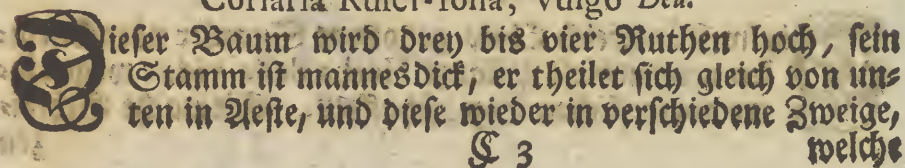 Coriaria Rusci-folia, vulgo Deu.
Dieser Baum wird drey bis vier Ruthen hoch, sein
Stamm ist mannesdick, er theilet sich gleich von un⸗
ten in Aeste, und diese wieder in verschiedene Zweige,
C 3 welche